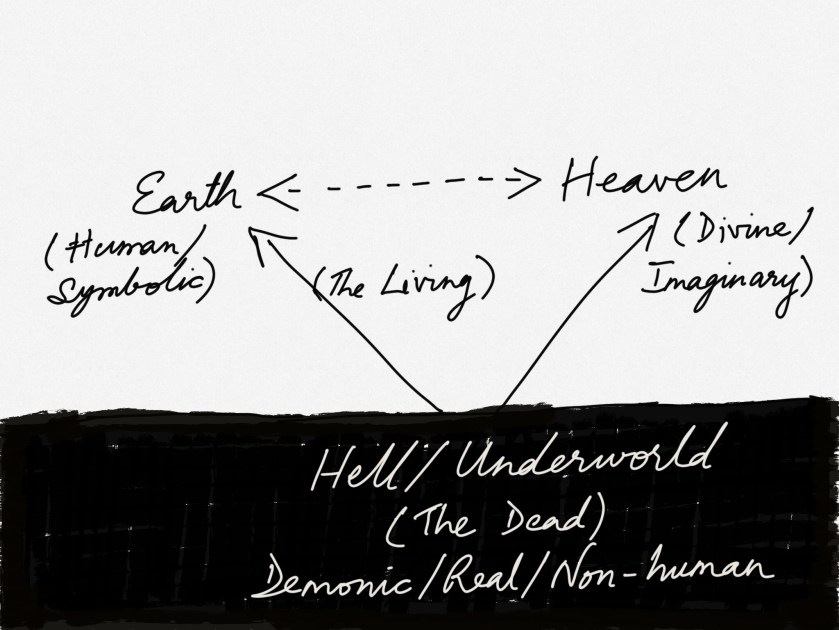 Earth
Heaven
(Human/
Symbolic)
(The Living)
(Divine/
Imaginary)
Hell/Underworld
(The Dead)
Demonic/Real/Non-human